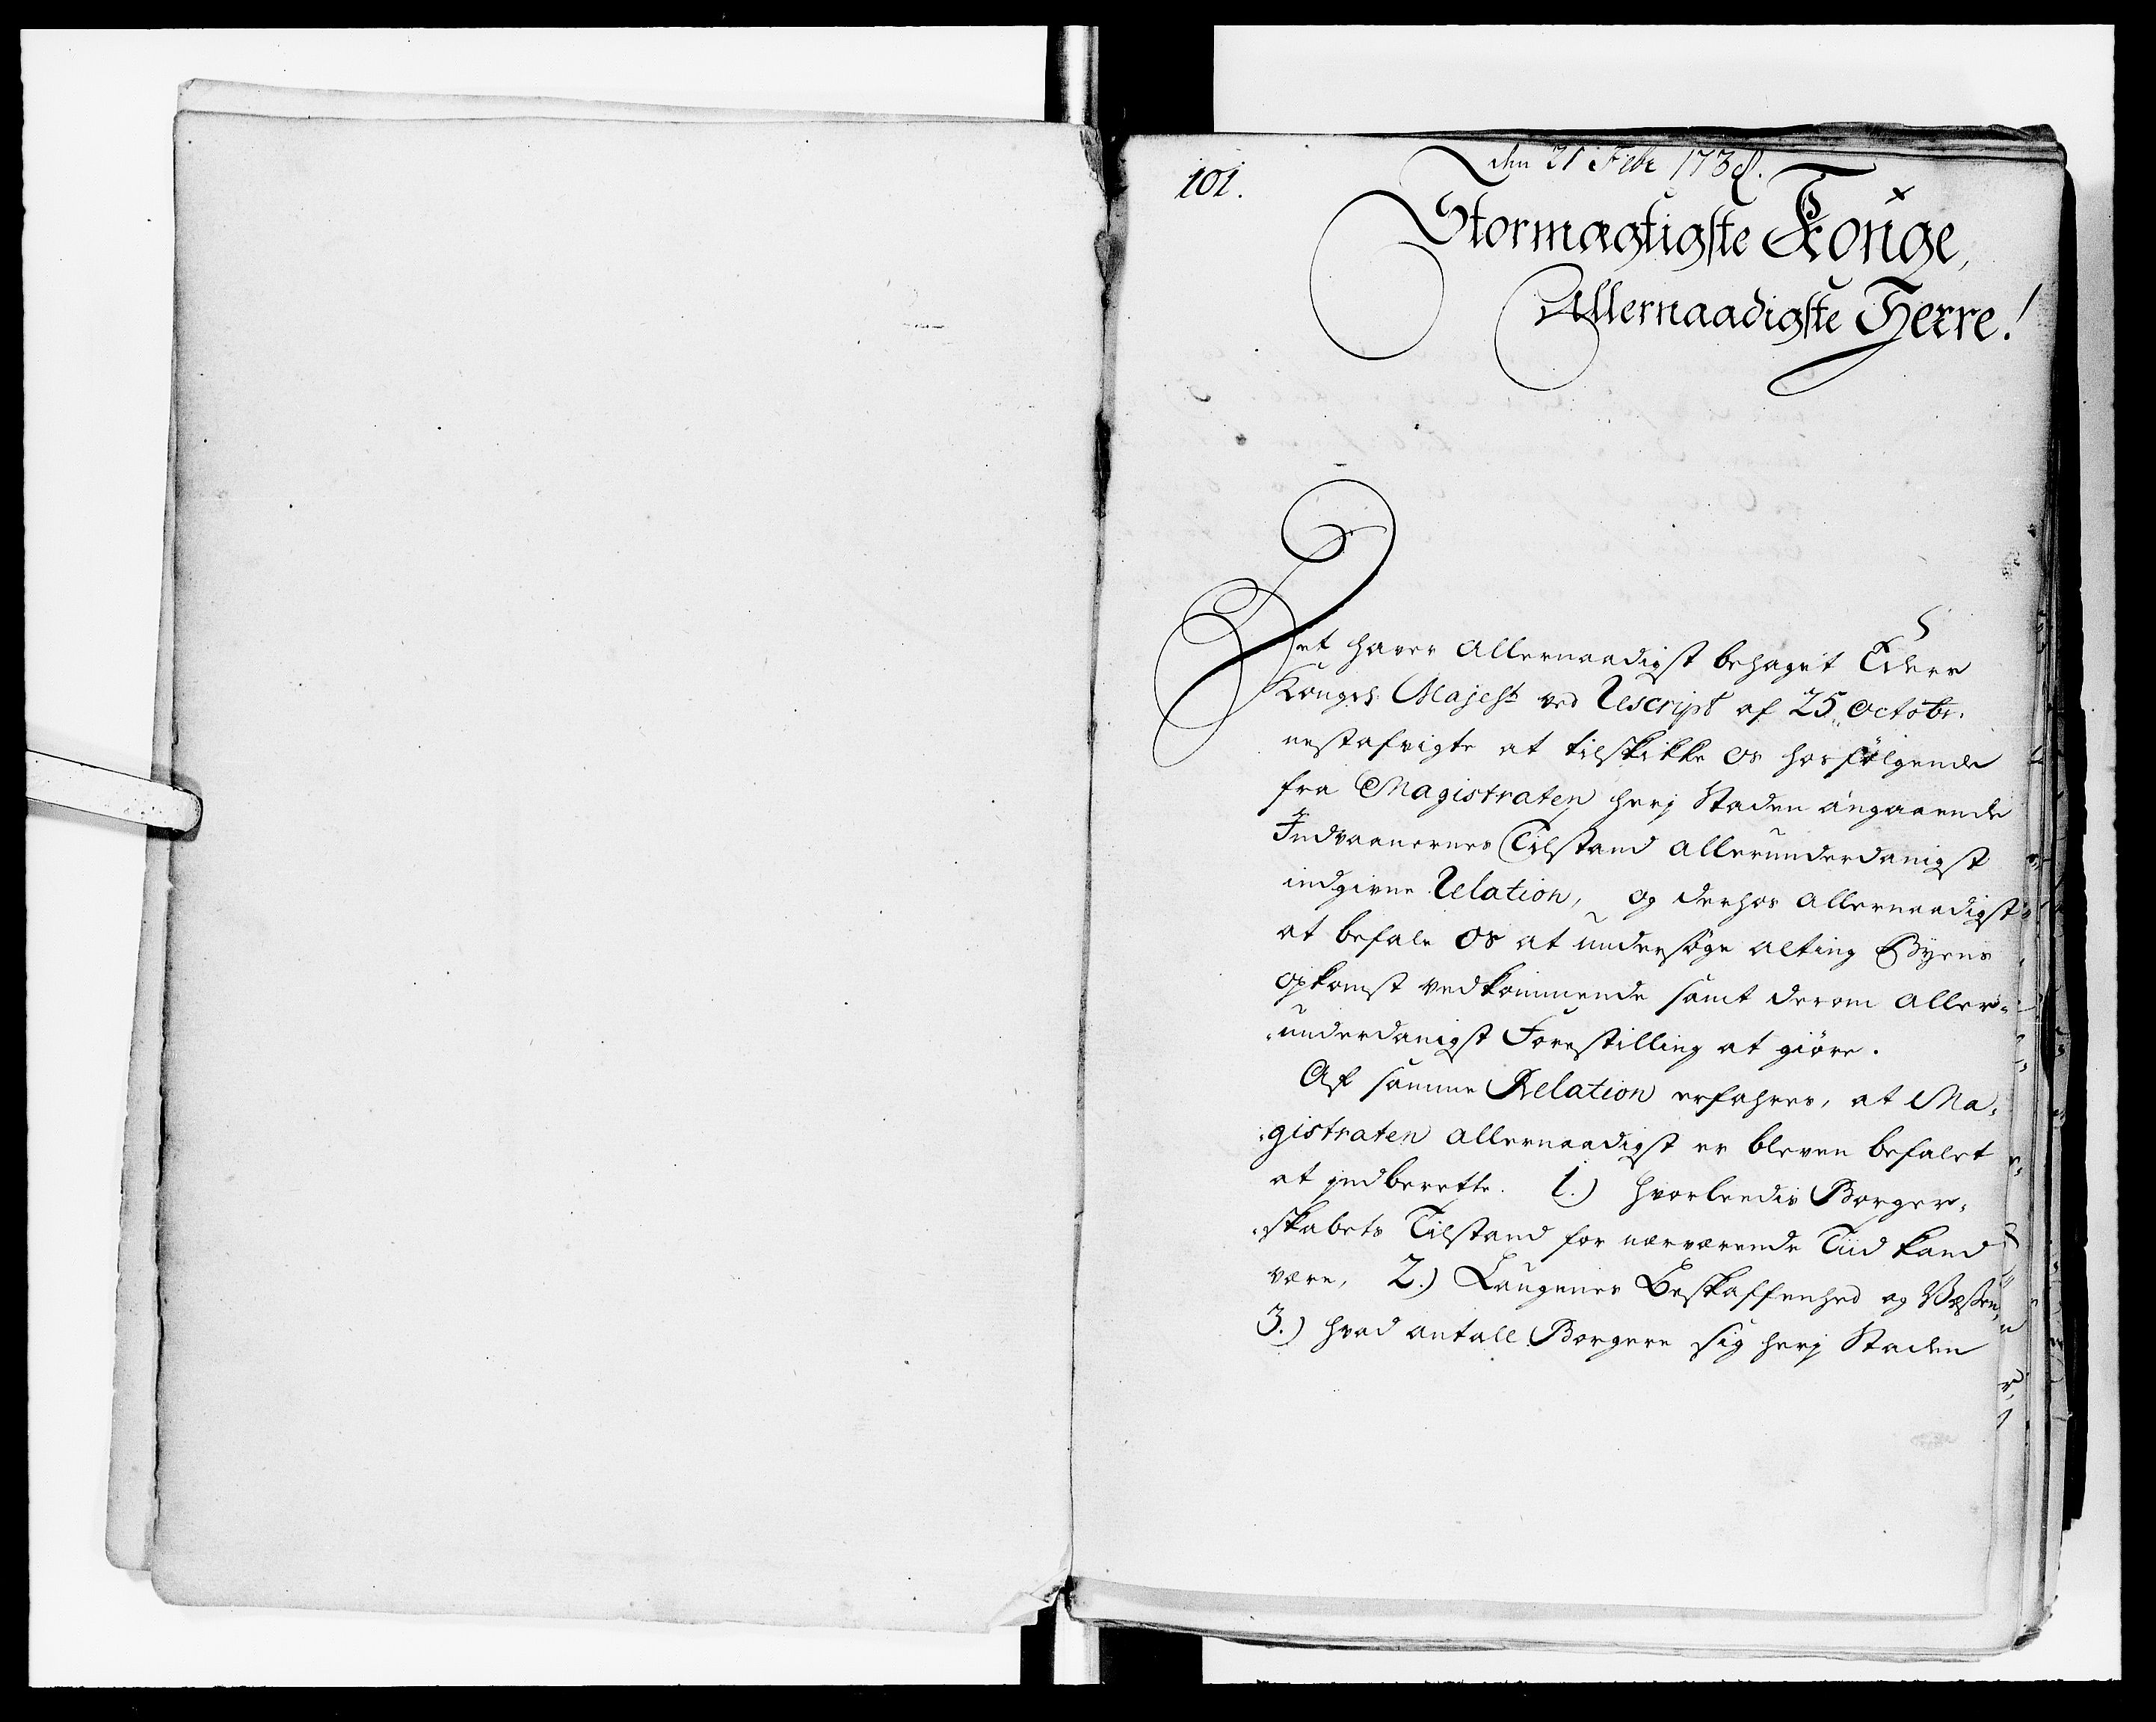 101.
den 21 Febr 1738.
Stormægtigste Konge,
Allernaadigste Herre!
Det haver Allernaadigst behaget Eders
Kongel: Majest ved Rescript af 25 Octobr.
nestafvigte at tilskikke os hosfølgende
fra Magistraten herj Staden angaaende
Indvaanernes Tilstand allerunderdanigst
indgivne Relation, og derhos Allernaadigst
at befale os at undersøge alting Byens
opkomst vedkommende samt derom aller-
underdanigst Forestilling at giøre.
Af samme Relation erfahres, at Ma-
gistraten allernaadigst er bleven befalet
at indberette. 1.) hvorledis Borger-
skabets Tilstand for nærværende Tiid kand
være, 2.) Laugenes Beskaffenhed og Væsen,
3.) hvad antall Borgere sig herj Staden